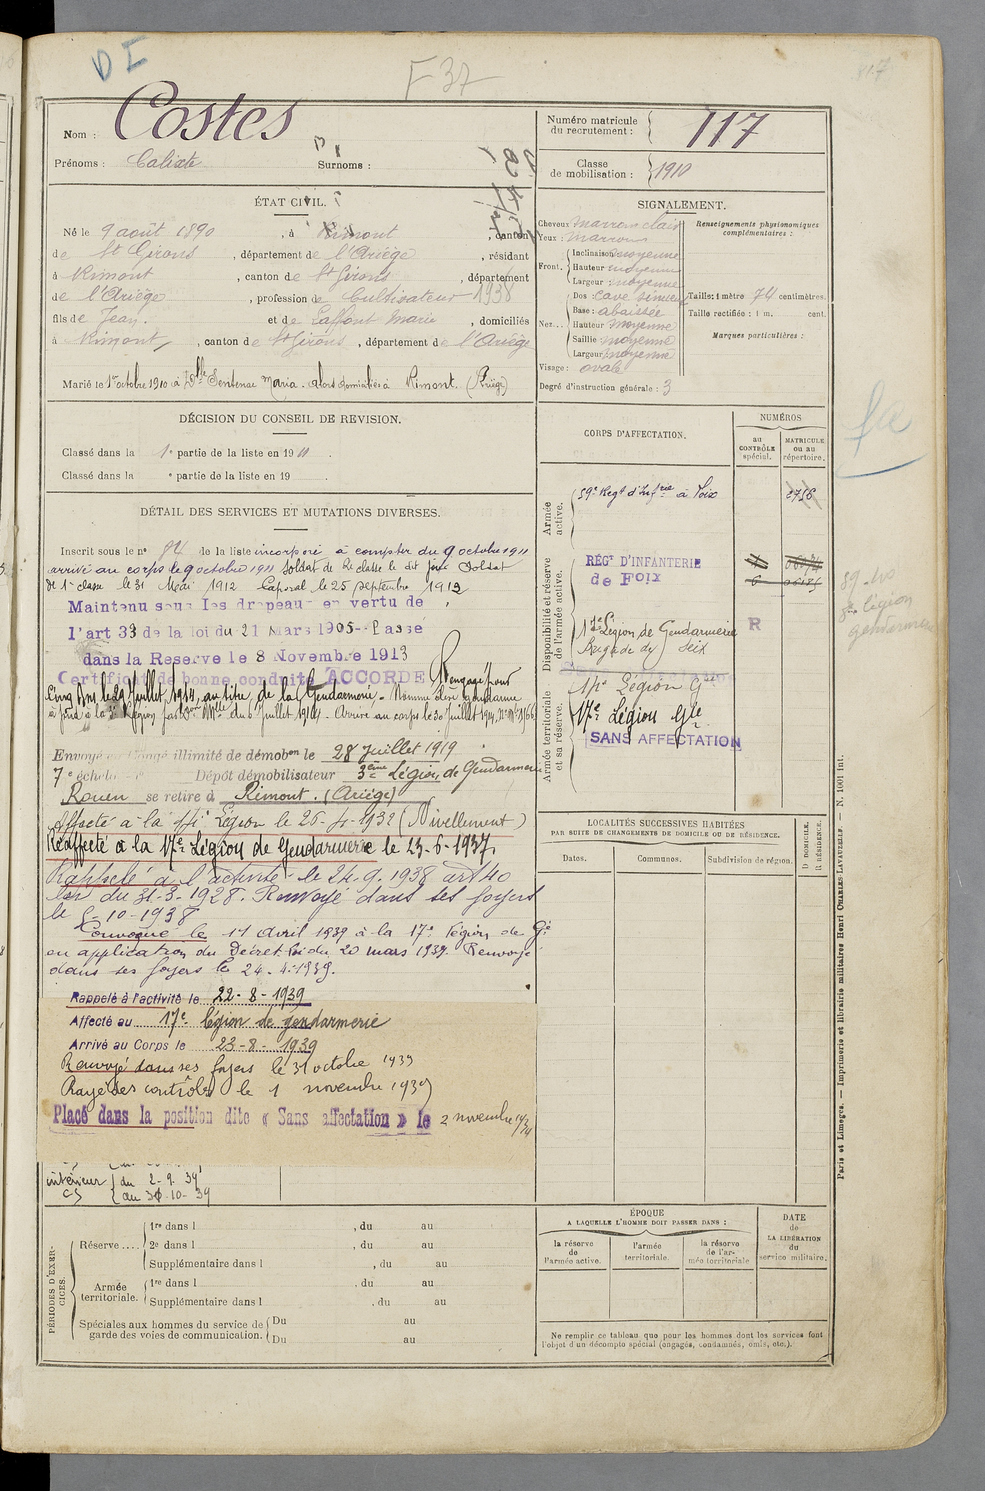 DI
F 37
Nom : Costes
Prénoms : Calixte Surnoms :
Numéro matricule du recrutement : 717
Classe de mobilisation : 1910
ÉTAT CIVIL.
Né le 9 août 1890, à Rimont, canton
de St Girons, département de l'Ariège, résidant
à Rimont, canton de St Girons, département
de l'Ariège, profession de Cultivateur 1938
fils de Jean. et de Laffont Marie, domiciliés
à Rimont, canton de St Girons, département de l'Ariège
Marié le 1er octobre 1910 à Delle Sentenac Maria. alors domiciliés à Rimont. (Ariège)
SIGNALEMENT.
Cheveux marron clair
Yeux : marrons
Front. Inclinaison moyenne
Hauteur moyenne
Largeur moyenne
Nez... Dos : cave sinueux
Base : abaissée
Hauteur moyenne
Saillie moyenne
Largeur moyenne
Visage : ovale
Degré d'instruction générale : 3
Renseignements physionomiques complémentaires :
Taille : 1 mètre 74 centimètres.
Taille rectifiée : 1 m. cent.
Marques particulières :
DÉCISION DU CONSEIL DE REVISION.
Classé dans la 1e partie de la liste en 1911.
Classé dans la e partie de la liste en 19 .
DÉTAIL DES SERVICES ET MUTATIONS DIVERSES.
Inscrit sous le n° 84 de la liste incorporé à compter du 9 octobre 1911
arrivé au corps le 9 octobre 1911 Soldat de 2e classe le dit jour Soldat
de 1e classe le 31 Mai 1912 Caporal le 25 septembre 1913
Maintenu sous les drapeaux en vertu de
l'art 33 de la loi du 21 Mars 1905 - Passé
dans la Reserve le 8 Novembre 1913
Certificat de bonne conduite ACCORDE Rengagé pour
Cinq Ans le 29 Juillet 1914, au titre de la Gendarmerie. Nommé élève gendarme
du 6 Juillet 1914. Arrivé au corps le 30 Juillet 1914.
Envoyé en Congé illimité de démobon le 28 Juillet 1919
7e échelon Dépôt démobilisateur 3ème Légion de Gendarmerie
Rouen se retire à Rimont. (Ariège)
Affecté à la 17e Légion le 26-4-1932 (Nivellement)
Réaffecté à la 17e Légion de Gendarmerie le 23-6-1937.
Rappelé à l'activité le 24.9.1938 art 40
loi du 31-3-1928. Renvoyé dans ses foyers
le 5-10-1938
Convoqué le 11 Avril 1939 à la 17e Légion de Gie
en application du Décret-loi du 20 mars 1939. Renvoyé
dans ses foyers le 24.4.1939.
Rappelé à l'activité le 22-8-1939
Affecté au 17e légion de gendarmerie
Arrivé au Corps le 23-8-1939
Renvoyé dans ses foyers le 31 octobre 1939
Rayé des contrôles le 1 novembre 1939
Placé dans la position dite « Sans affectation » le 2 novembre 1939
intérieur du 2-9-39
CS au 30-10-39
CORPS D'AFFECTATION.
NUMÉROS
au CONTRÔLE spécial.
MATRICULE ou au répertoire.
Armée active.
59e Regt d'Infrie à Foix 2756
Disponibilité et réserve de l'armée active.
RÉGt D'INFANTERIE
de FOIX
Légion de Gendarmerie R
Brigade de Seix
Armée territoriale et sa réserve.
17e Légion Gie
17e Légion Gie
SANS AFFECTATION
59e
légion
gendarmerie
LOCALITÉS SUCCESSIVES HABITÉES
PAR SUITE DE CHANGEMENTS DE DOMICILE OU DE RÉSIDENCE.
Dates. Communes. Subdivision de région. D DOMICILE. R RÉSIDENCE.
PÉRIODES D'EXERCICES.
Réserve .... 1re dans l , du au
2e dans l , du au
Supplémentaire dans l , du au
Armée territoriale. 1re dans l , du au
Supplémentaire dans l , du au
Spéciales aux hommes du service de garde des voies de communication. Du au
Du au
ÉPOQUE
A LAQUELLE L'HOMME DOIT PASSER DANS :
la réserve de l'armée active.
l'armée territoriale.
la réserve de l'armée territoriale
DATE de LA LIBÉRATION du service militaire.
Ne remplir ce tableau que pour les hommes dont les services font
l'objet d'un décompte spécial (engagés, condamnés, omis, etc.).
Paris et Limoges. — Imprimerie et librairie militaires Henri CHARLES-LAVAUZELLE. — N. 1001 int.